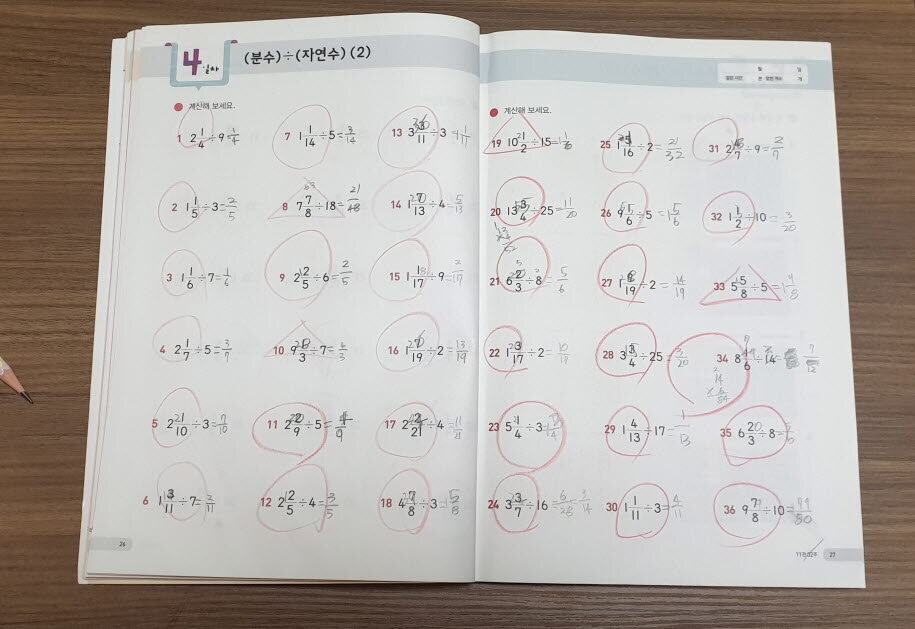 4일차
(분수)÷(자연수) (2)
계산해 보세요.
1 2 1/4 ÷ 9 = 1/4
2 1 1/5 ÷ 3 = 2/5
3 1 1/6 ÷ 7 = 1/6
4 2 1/7 ÷ 5 = 3/7
5 2 1/10 ÷ 3 = 7/10
6 1 3/11 ÷ 7 = 2/11
7 1 1/14 ÷ 5 = 3/14
8 7 7/8 ÷ 18 =
9 2 2/5 ÷ 6 = 2/5
10 9 1/3 ÷ 7 =
11 2 2/9 ÷ 5 = 4/9
12 2 2/5 ÷ 4 = 3/5
13 3 3/11 ÷ 3 = 1 1/11
14 1 7/13 ÷ 4 = 5/13
15 1 1/17 ÷ 9 = 2/17
16 1 7/19 ÷ 2 = 13/19
17 2 2/21 ÷ 4 = 11/21
18 4 7/8 ÷ 3 = 1 5/8
26
월 일
걸린 시간 분 맞힌 개수 개
계산해 보세요.
19 10 1/2 ÷ 15 =
20 13 3/4 ÷ 25 = 11/20
21 6 2/3 ÷ 8 = 5/6
22 1 3/17 ÷ 2 = 10/17
23 5 1/4 ÷ 3 = 1 3/4
24 3 3/7 ÷ 16 = 6/28 = 3/14
25 1 5/16 ÷ 2 = 21/32
26 9 1/6 ÷ 5 = 1 5/6
27 1 9/19 ÷ 2 = 14/19
28 3 3/4 ÷ 25 = 3/20
29 1 4/13 ÷ 17 = 1/13
30 1 1/11 ÷ 3 = 4/11
31 2 4/7 ÷ 9 = 2/7
32 1 1/2 ÷ 10 = 3/20
33 5 5/8 ÷ 5 = 1 1/8
34 8 1/6 ÷ 14 = 7/12
35 6 2/3 ÷ 8 = 5/6
36 9 7/8 ÷ 10 = 79/80
27